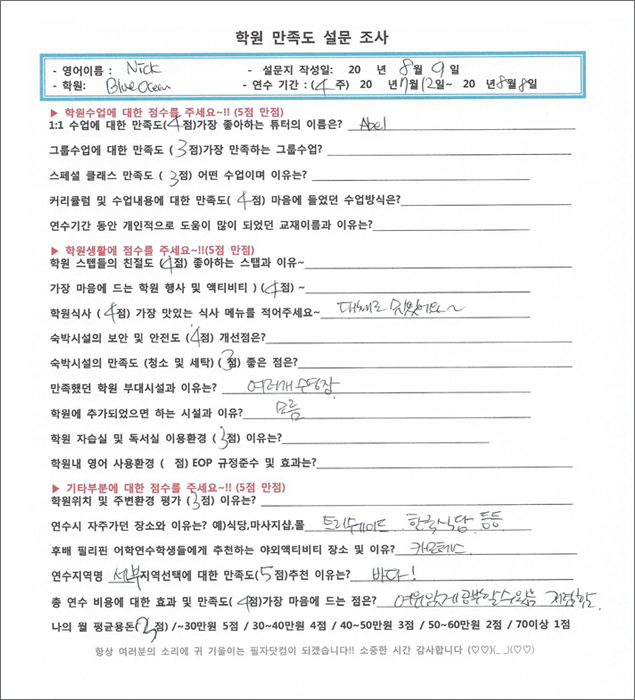 학원 만족도 설문 조사
- 영어이름 : Nick - 설문지 작성일: 20 년 8월 9일
- 학원: Blue Ocean - 연수 기간 : (4 주) 20 년 7월 12일~ 20 년 8월 8일
▶ 학원수업에 대한 점수를 주세요~!! (5점 만점)
1:1 수업에 대한 만족도(4점)가장 좋아하는 튜터의 이름은? Abel
그룹수업에 대한 만족도 ( 3점)가장 만족하는 그룹수업?
스페셜 클래스 만족도 ( 3점) 어떤 수업이며 이유는?
커리큘럼 및 수업내용에 대한 만족도( 4점) 마음에 들었던 수업방식은?
연수기간 동안 개인적으로 도움이 많이 되었던 교재이름과 이유는?
▶ 학원생활에 점수를 주세요~!!(5점 만점)
학원 스텝들의 친절도 (4점) 좋아하는 스탭과 이유~
가장 마음에 드는 학원 행사 및 액티비티 ) (4점) ~
학원식사 ( 4점) 가장 맛있는 식사 메뉴를 적어주세요~ 대체로 맛있었어요~
숙박시설의 보안 및 안전도 (4점) 개선점은?
숙박시설의 만족도 (청소 및 세탁) ( 3점) 좋은 점은?
만족했던 학원 부대시설과 이유는? 여러개 수영장
학원에 추가되었으면 하는 시설과 이유? 모름
학원 자습실 및 독서실 이용환경 ( 3점) 이유는?
학원내 영어 사용환경 ( 점) EOP 규정준수 및 효과는?
▶ 기타부분에 대한 점수를 주세요~!! (5점 만점)
학원위치 및 주변환경 평가 ( 3점) 이유는?
연수시 자주가던 장소와 이유는? 예)식당,마사지샵,몰 트리쉐이드 한국식당 등등
후배 필리핀 어학연수학생들에게 추천하는 야외액티비티 장소 및 이유? 카모테스
연수지역명 세부 지역선택에 대한 만족도(5점)추천 이유는? 바다!
총 연수 비용에 대한 효과 및 만족도( 4점)가장 마음에 드는 점은? 여유있게 공부할 수 있음 저렴함
나의 월 평균용돈( 점) /~30만원 5점 / 30~40만원 4점 / 40~50만원 3점 / 50~60만원 2점 / 70이상 1점
항상 여러분의 소리에 귀 기울이는 필자닷컴이 되겠습니다!! 소중한 시간 감사합니다 (♡♡)(_ _)(♡♡)